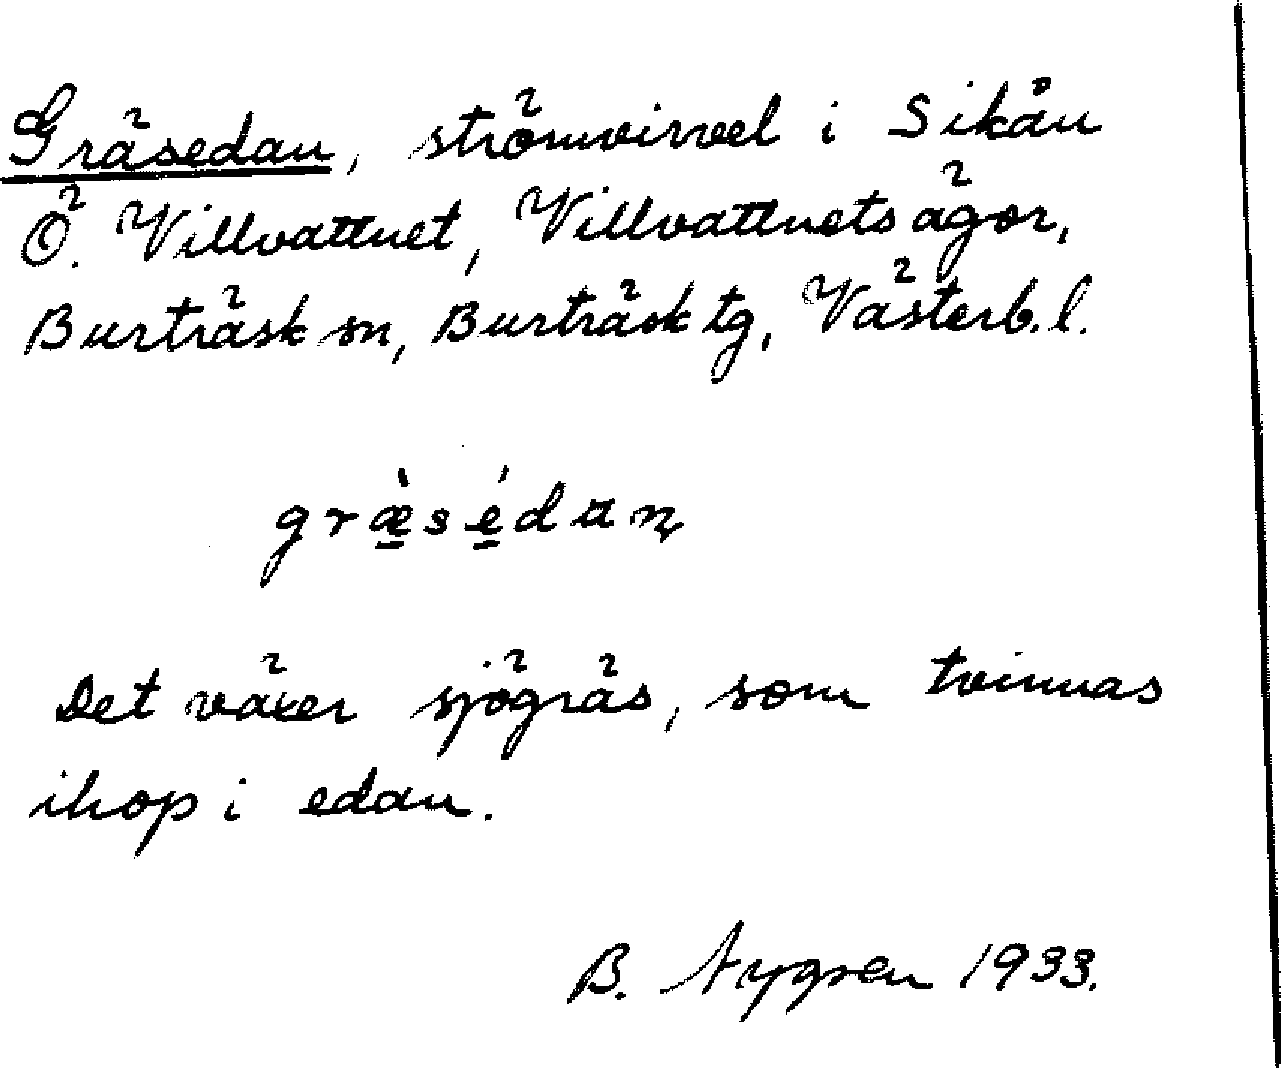 Gräsedan, strömvirvel i Sikån
Ö. Villvattnet, Villvattnets ägor,
Burträsk sn, Burträsk tg, Västerb. l.
græ̠̀sé̠dan̨
Det växer sjögräs, som tvinnas
ihop i edan.
B. Nygren 1933.